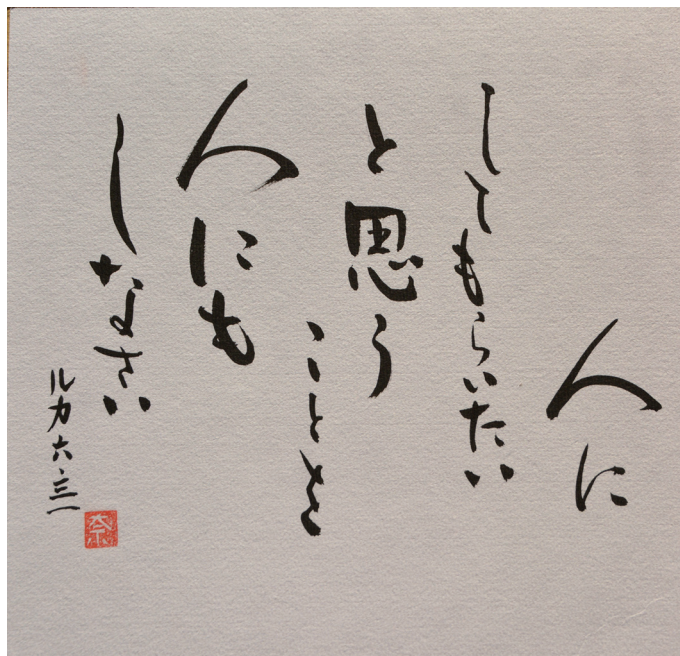 人に
してもらいたい
と思う
ことを
人にも
しなさい
ルカ六・三一
奈